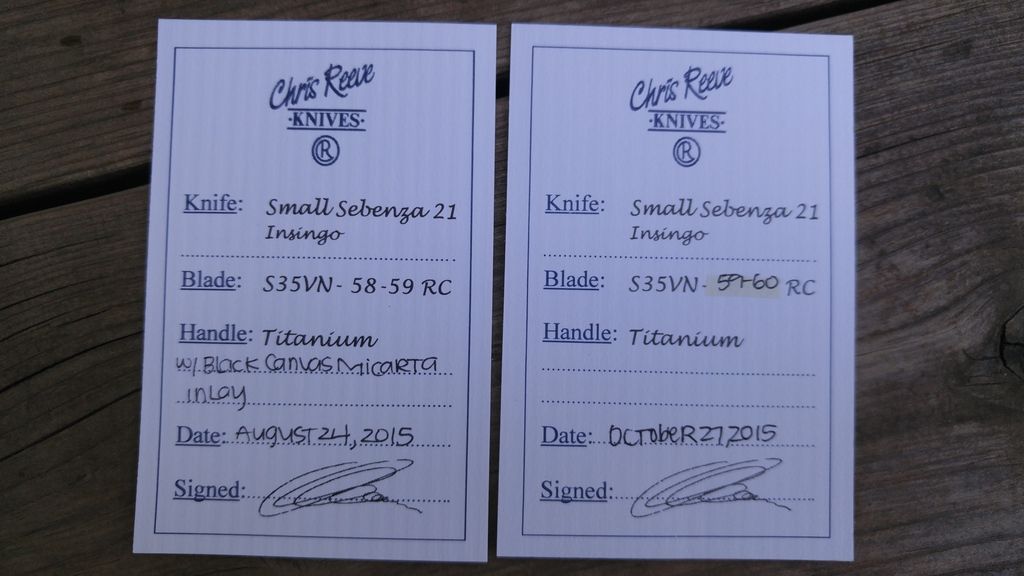 Chris Reeve
·KNIVES·
R
Knife: Small Sebenza 21
Insingo
Blade: S35VN - 58-59 RC
Handle: Titanium
w/ Black Canvas Micarta
inlay
Date: August 24, 2015
Signed:
Chris Reeve
·KNIVES·
R
Knife: Small Sebenza 21
Insingo
Blade: S35VN - 59-60 RC
Handle: Titanium
Date: October 27, 2015
Signed: